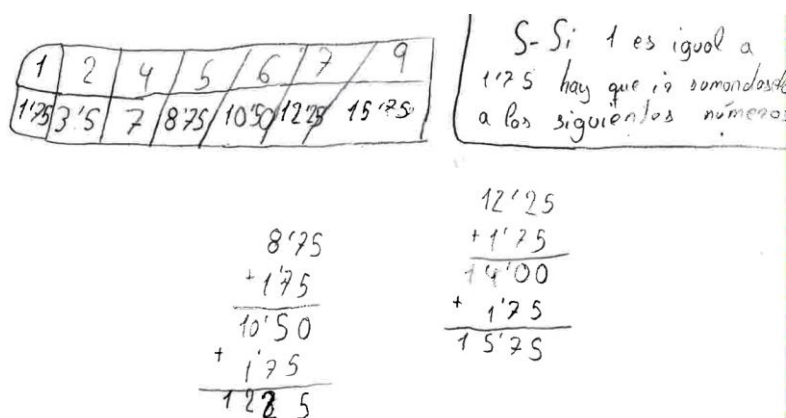 1 2 4 5 6 7 9
1'75 3'5 7 8'75 10'50 12'25 15'75
S- Si 1 es igual a
1'75 hay que ir
a los siguientes números
8'75
+ 1'75
10'50
+ 1'75
12 2 5
12'25
+ 1'75
14'00
+ 1'75
15'75